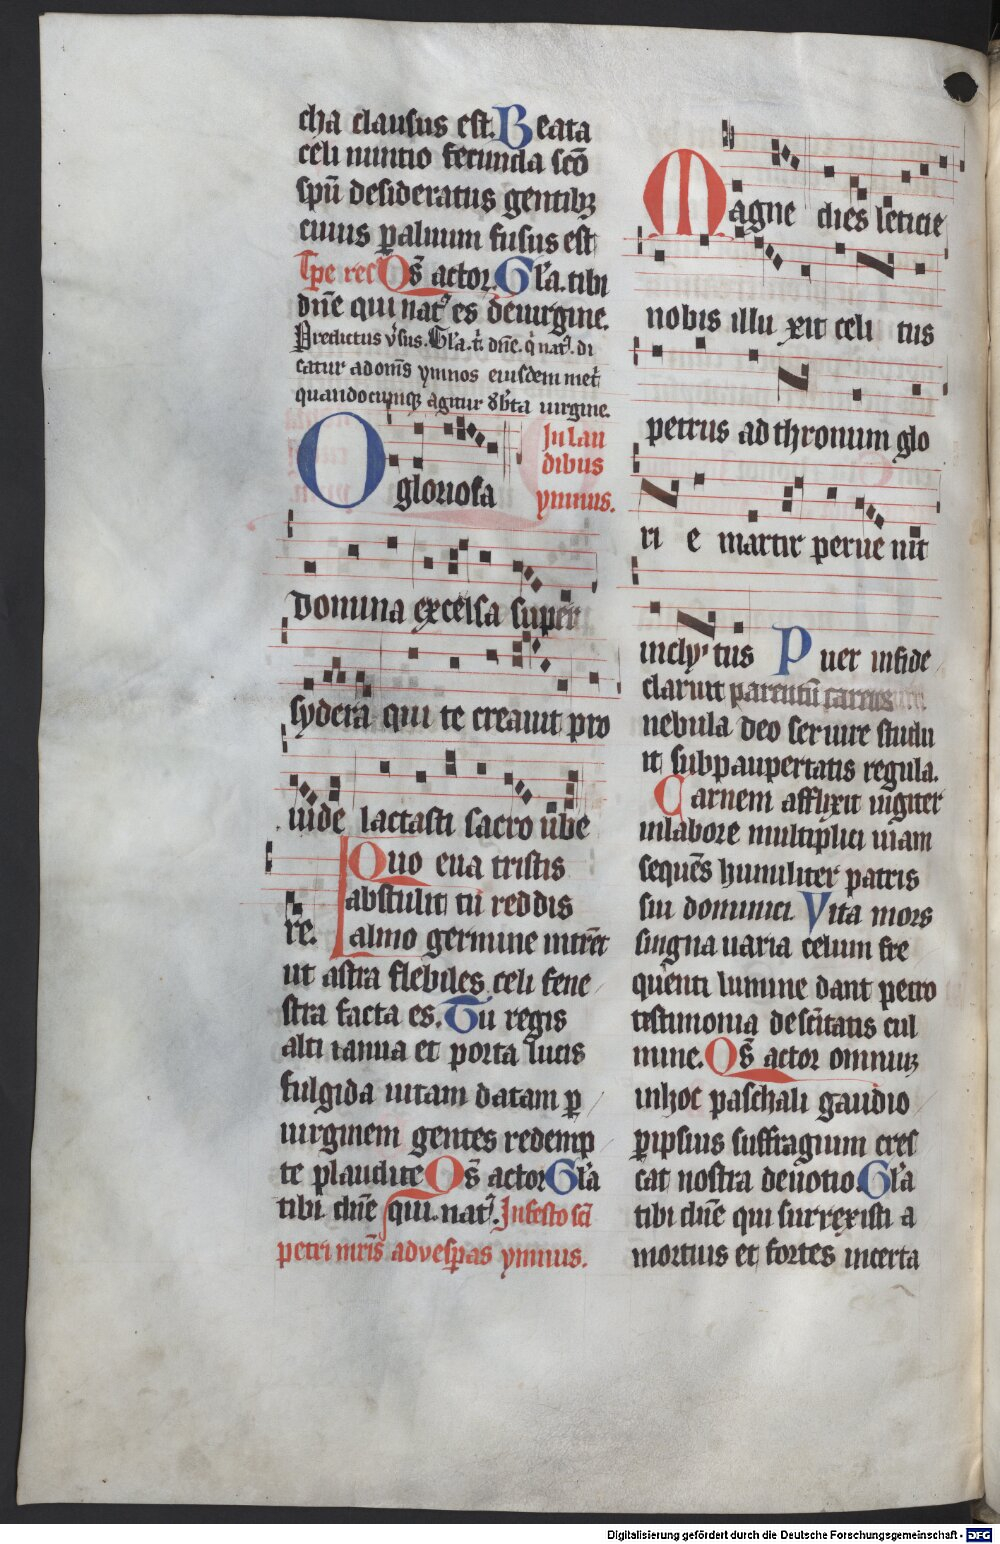 cha clausus est. Beata
celi nuntio fecunda sc̄o
spū desideratus gentibꝫ
cuius ꝑ aluum fusus est
Tp̄e res Os̄ actor. Gl'a tibi
dn̄e qui nat' es de uirgine.
Predictus v̓sus. Gl'a. t. dn̄e. q̓ nat'. di
catur ad om̄s ymnos eiusdem met̓
quandocumqꝫ agitur d' b̄ta uirgine.
O gloriosa
In lau
dibus
ymnus.
domina excelsa super
sydera qui te creauit pro
uide lactasti sacro ube
re. Quo eua tristis
abstulit tu reddis
almo germine intrēt
ut astra flebiles celi fene
stra facta es. Tu regis
alti ianua et porta lucis
fulgida uitam datam ꝑ
uirginem gentes redemp
te plaudite Os̄ actor Gl'a
tibi dn̄e qui nat'. In festo sc̄i
petri mr̄is ad vesꝑas ymnus.
Magne dies leticie
nobis illu xit celi tus
petrus ad thronum glo
ri e martir perue nit
incly tus Puer in fide
claruit parentū carens
nebula deo seruire studu
it sub paupertatis regula.
Carnem afflixit iugiter
in labore multiplici uiam
sequēs humiliter patris
sui dominici. Vita mors
singna uaria celum fre
quenti lumine dant petro
testimonia de sc̄itatis cul
mine. Os̄ actor omniuꝫ
in hoc paschali gaudio
ꝑ ipsius suffragium cres
cat nostra deuotio. Gl'a
tibi dn̄e qui surrexisti a
mortuis et fortes in certa
Digitalisierung gefördert durch die Deutsche Forschungsgemeinschaft - DFG